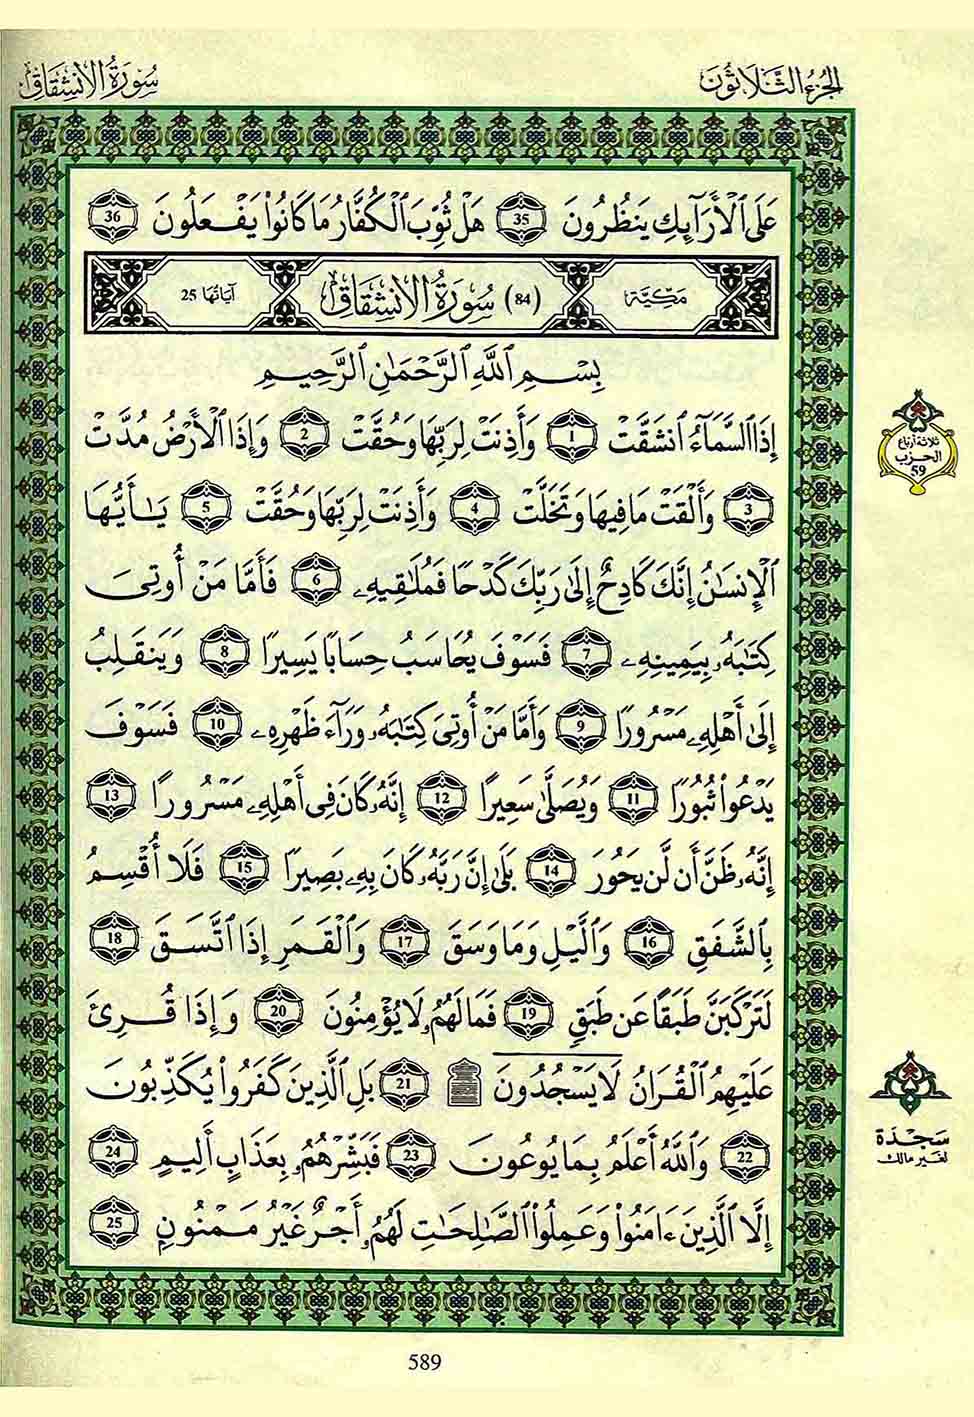 الجزء الثلاثون
سورة الانشقاق
عَلَى ٱلْأَرَآئِكِ يَنظُرُونَ 35 هَلْ ثُوِّبَ ٱلْكُفَّارُ مَا كَانُوا۟ يَفْعَلُونَ 36
مكية
(84) سورة الانشقاق
آياتها 25
بِسْمِ ٱللَّهِ ٱلرَّحْمَٰنِ ٱلرَّحِيمِ
إِذَا ٱلسَّمَآءُ ٱنشَقَّتْ 1 وَأَذِنَتْ لِرَبِّهَا وَحُقَّتْ 2 وَإِذَا ٱلْأَرْضُ مُدَّتْ
3 وَأَلْقَتْ مَا فِيهَا وَتَخَلَّتْ 4 وَأَذِنَتْ لِرَبِّهَا وَحُقَّتْ 5 يَٰٓأَيُّهَا
ٱلْإِنسَٰنُ إِنَّكَ كَادِحٌ إِلَىٰ رَبِّكَ كَدْحًا فَمُلَٰقِيهِ 6 فَأَمَّا مَنْ أُوتِىَ
كِتَٰبَهُۥ بِيَمِينِهِۦ 7 فَسَوْفَ يُحَاسَبُ حِسَابًا يَسِيرًا 8 وَيَنقَلِبُ
إِلَىٰٓ أَهْلِهِۦ مَسْرُورًا 9 وَأَمَّا مَنْ أُوتِىَ كِتَٰبَهُۥ وَرَآءَ ظَهْرِهِۦ 10 فَسَوْفَ
يَدْعُوا۟ ثُبُورًا 11 وَيُصَلَّىٰ سَعِيرًا 12 إِنَّهُۥ كَانَ فِىٓ أَهْلِهِۦ مَسْرُورًا 13
إِنَّهُۥ ظَنَّ أَن لَّن يَحُورَ 14 بَلَىٰٓ إِنَّ رَبَّهُۥ كَانَ بِهِۦ بَصِيرًا 15 فَلَآ أُقْسِمُ
بِٱلشَّفَقِ 16 وَٱلَّيْلِ وَمَا وَسَقَ 17 وَٱلْقَمَرِ إِذَا ٱتَّسَقَ 18
لَتَرْكَبُنَّ طَبَقًا عَن طَبَقٍ 19 فَمَا لَهُمْ لَا يُؤْمِنُونَ 20 وَإِذَا قُرِئَ
عَلَيْهِمُ ٱلْقُرْءَانُ لَا يَسْجُدُونَ 21 بَلِ ٱلَّذِينَ كَفَرُوا۟ يُكَذِّبُونَ
22 وَٱللَّهُ أَعْلَمُ بِمَا يُوعُونَ 23 فَبَشِّرْهُم بِعَذَابٍ أَلِيمٍ 24
إِلَّا ٱلَّذِينَ ءَامَنُوا۟ وَعَمِلُوا۟ ٱلصَّٰلِحَٰتِ لَهُمْ أَجْرٌ غَيْرُ مَمْنُونٍ 25
ثلاثة أرباع
الحزب
59
سجدة
لغير مالك
589